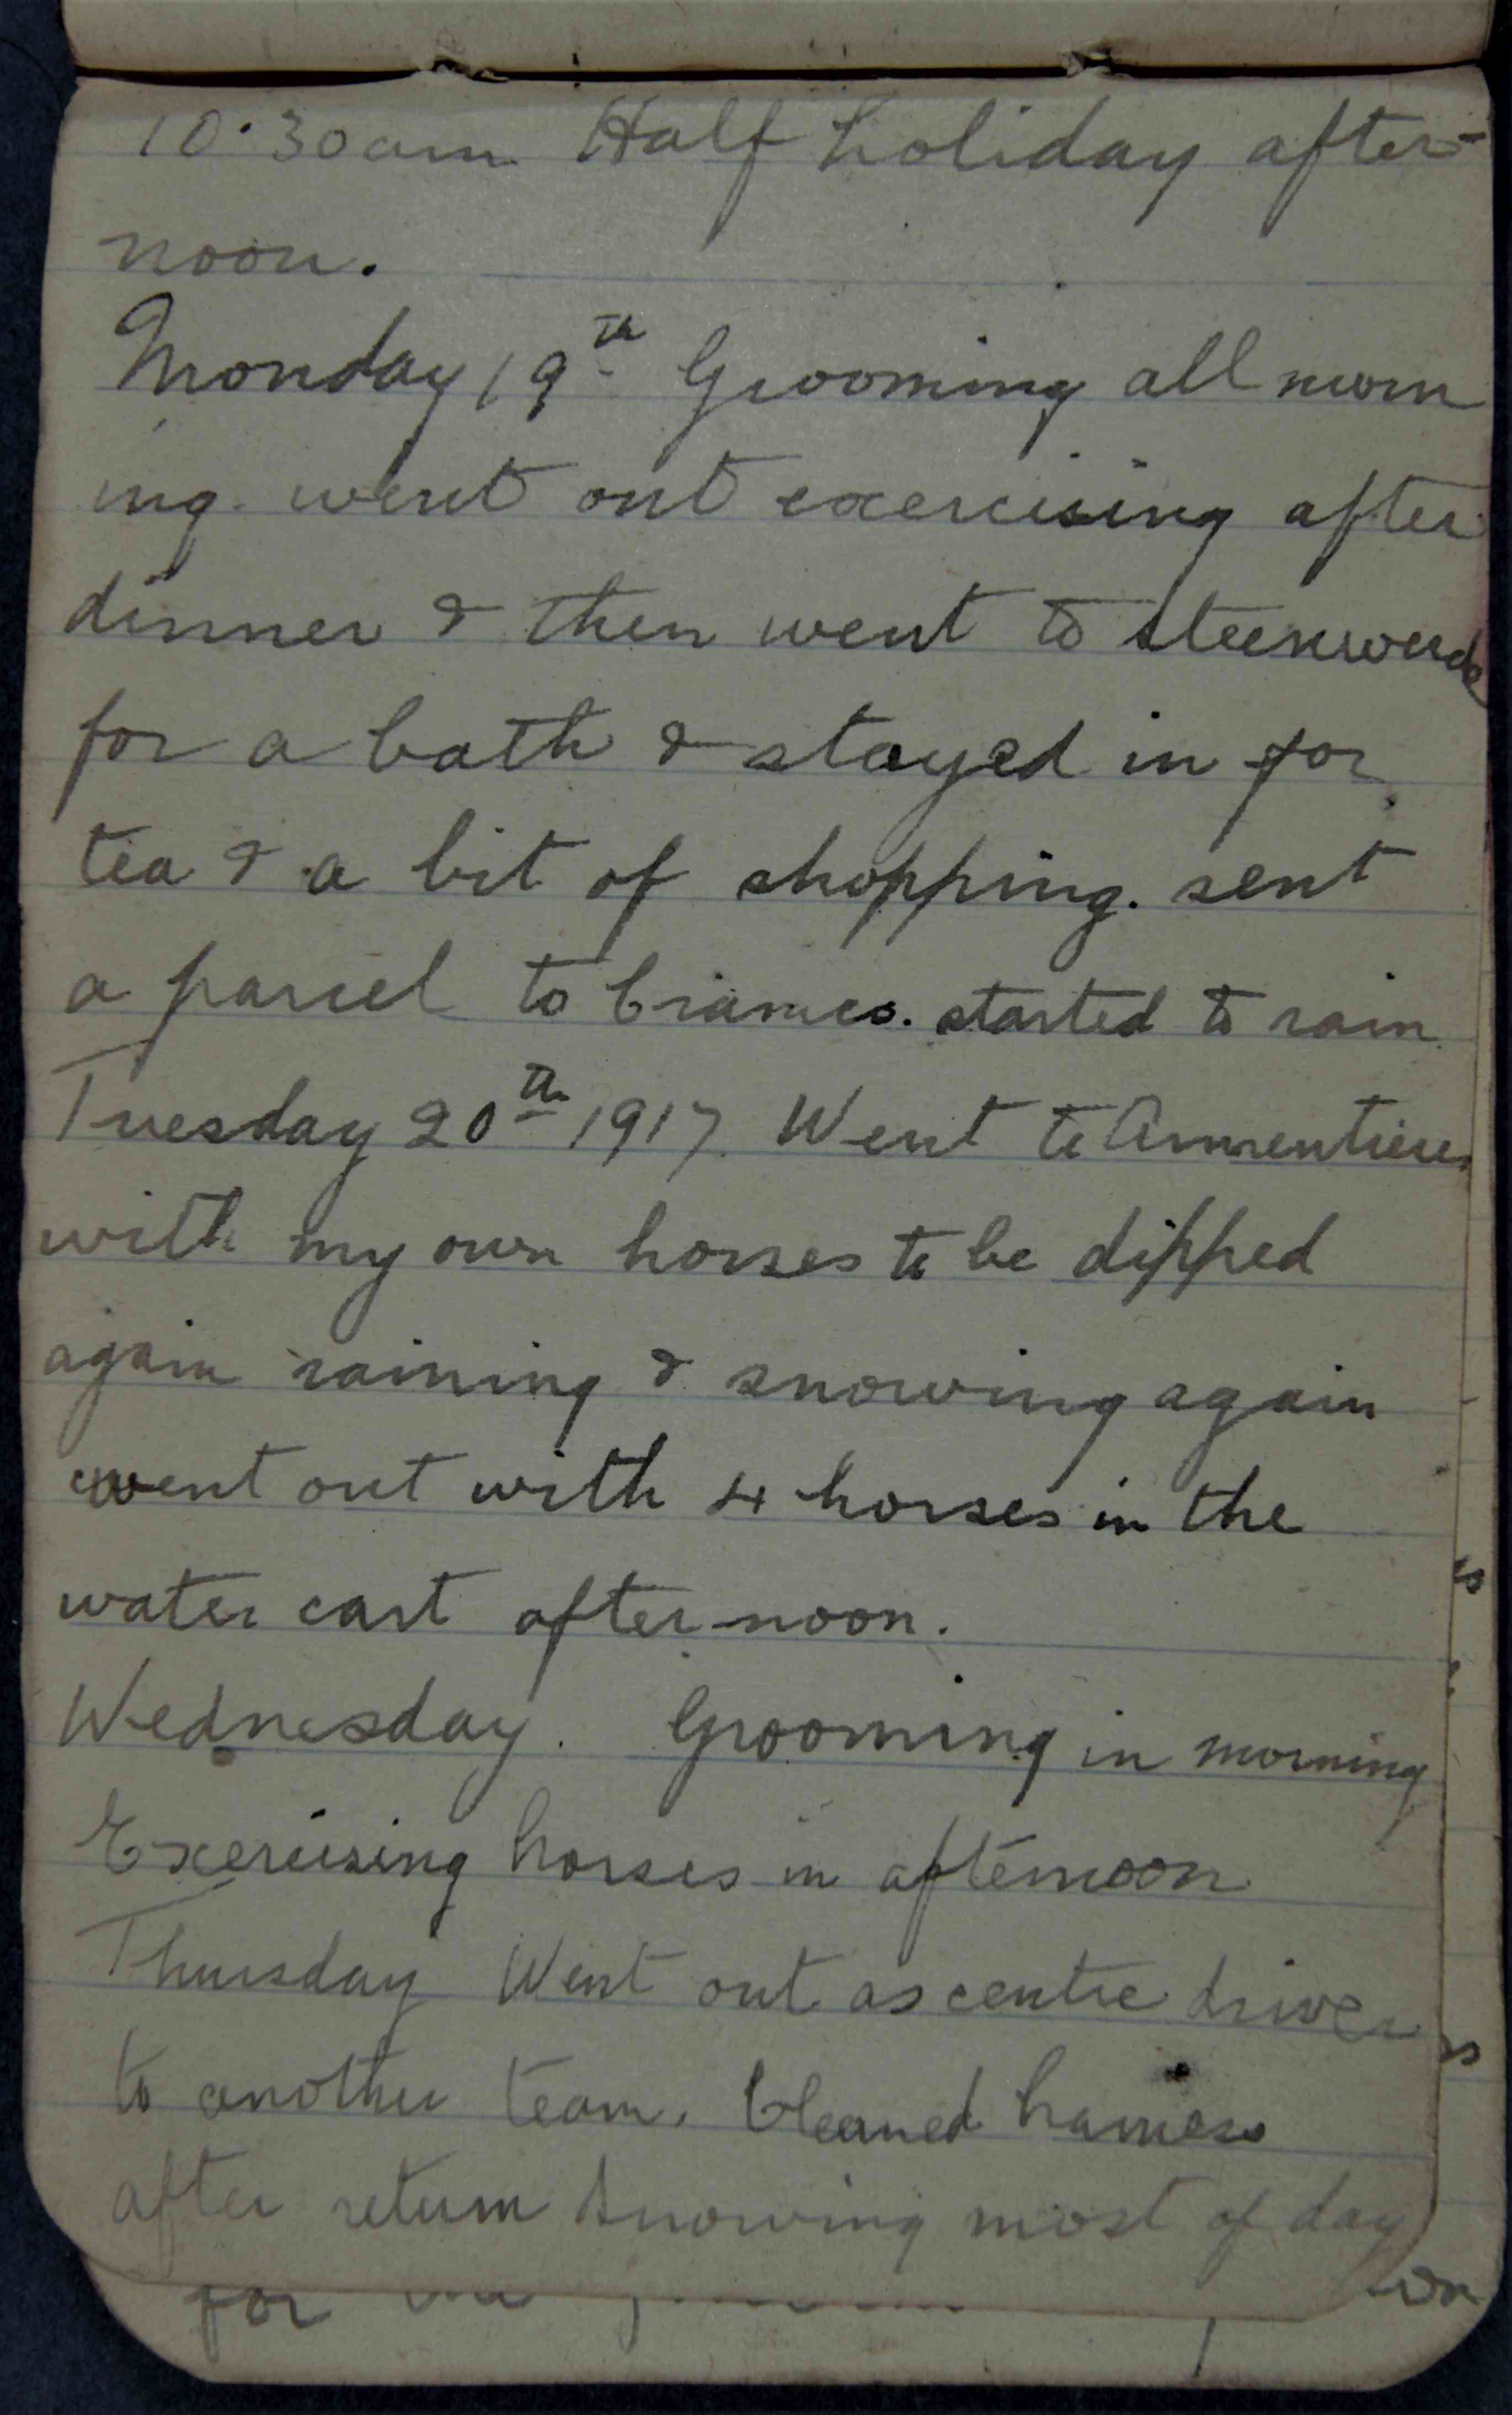 10.30am Half holiday after-
noon.
Monday 19th Grooming all morn
ing. went out exercising after
dinner & then went to Steenwerck
for a bath & stayed in for
tea & a bit of shopping. sent
a parcel to started to rain
Tuesday 20th 1917. Went to Armentieres
with my own horses to be dipped
again raining & snowing again
went out with 4 horses in the
water cart afternoon.
Wednesday. Grooming in morning
Exercising horses in afternoon.
Thursday Went out as centre driver
to another team. Cleaned harness
after return Snowing most of day
for